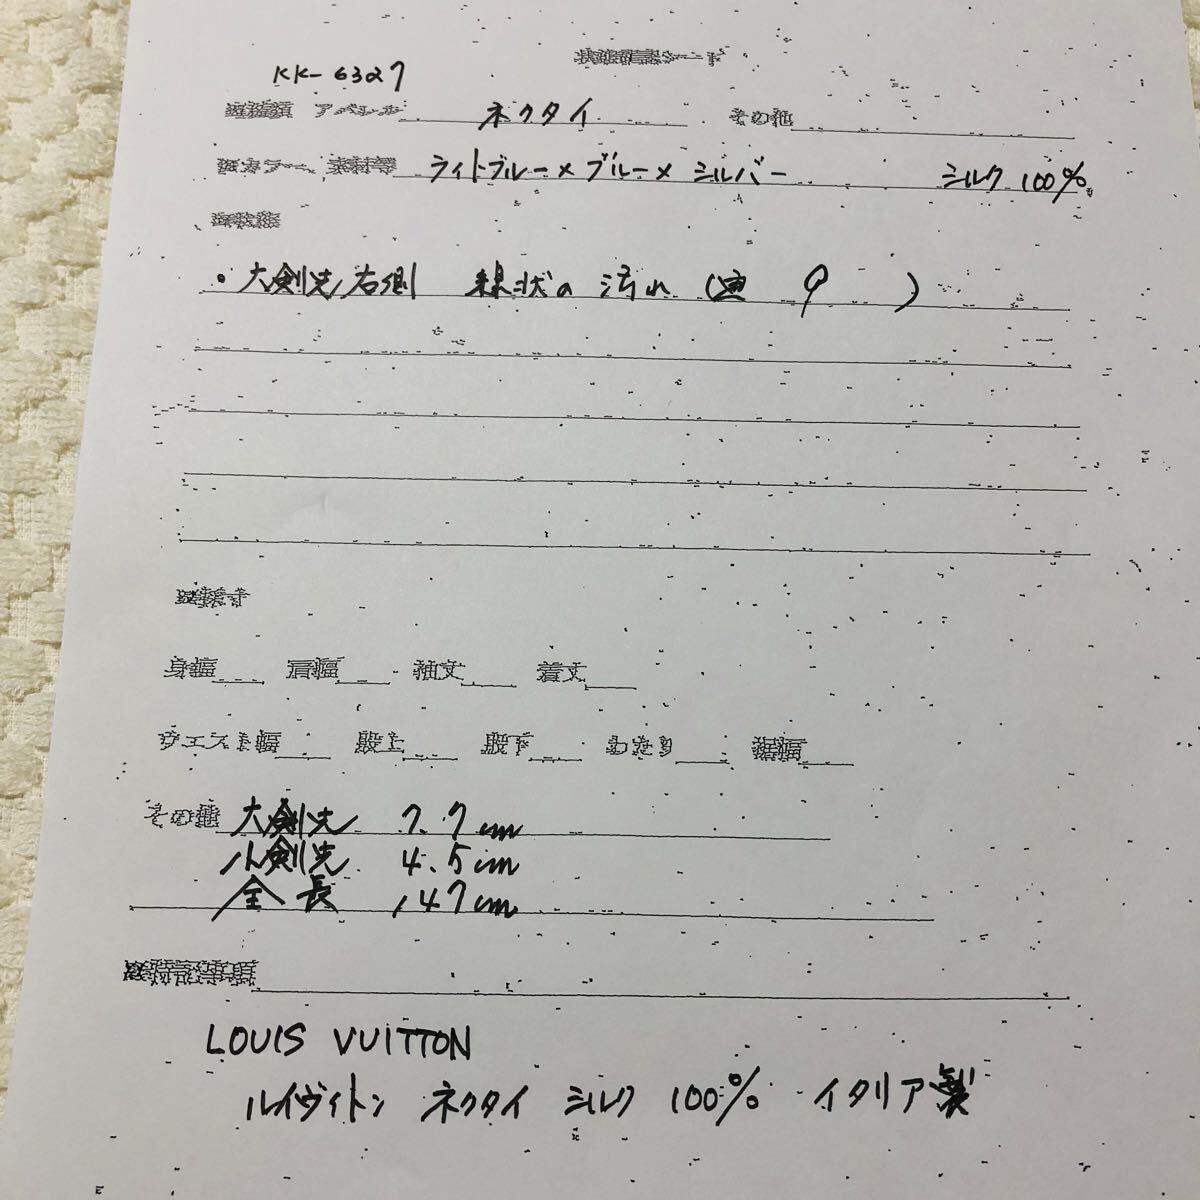 状態確認シート
KK-6327
アパレル ネクタイ その他
カラー、素材等 ライトブルー×ブルー×シルバー シルク 100%
状態
・大剣先右側 線状の汚れ ( 9 )
採寸
身幅 肩幅 袖丈 着丈
ウエスト幅 股上 股下 わたり 裾幅
その他 大剣先 7.7cm
小剣先 4.5cm
全長 147cm
特記事項
LOUIS VUITTON
ルイヴィトン ネクタイ シルク 100% イタリア製